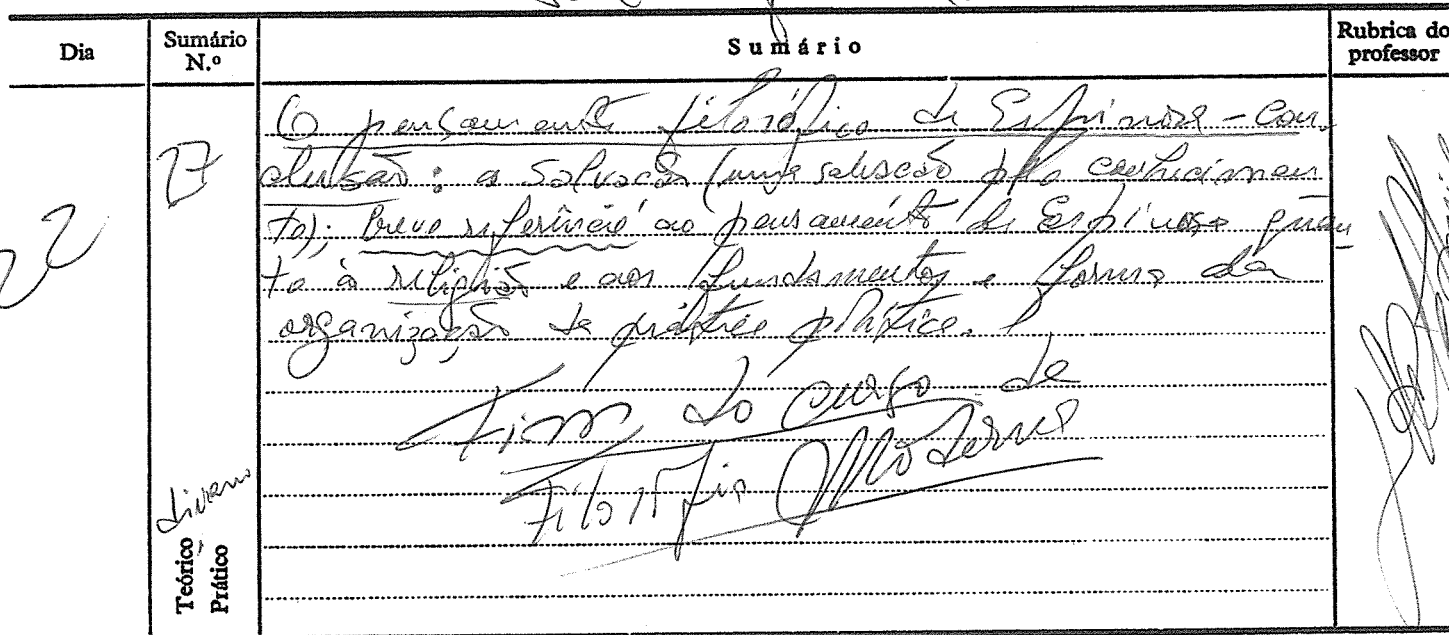 Dia
Sumário N.º
Sumário
Rubrica do professor
22
O pensamento filosófico de Espinosa - Con-
clusão: a salvação (uma salvação pelo conhecimen
to); breve referência ao pensamento de Espinosa quan
to à religião e aos fundamentos e forma da
organização da prática política.
Fim do curso de
Filosofia Moderna
Teórico
Prático